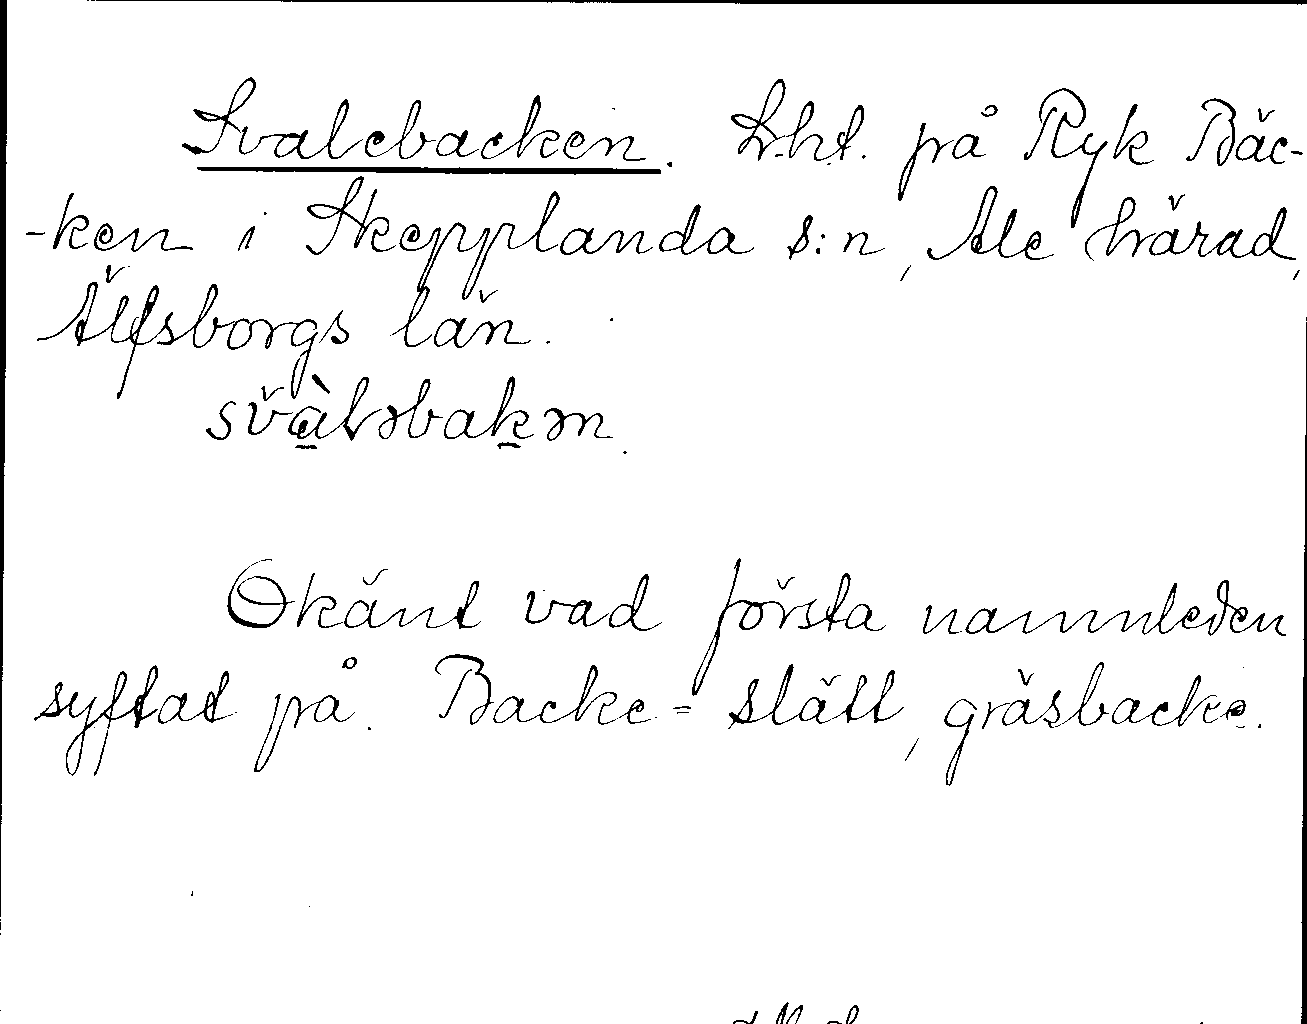 Svalebacken. Lht. på Ryk Bäc-
-ken i Skepplanda s:n, Ale härad,
Älfsborgs län.
svàləbakən.
Okänt vad första namnleden
syftat på. Backe = slätt, gräsbacke.